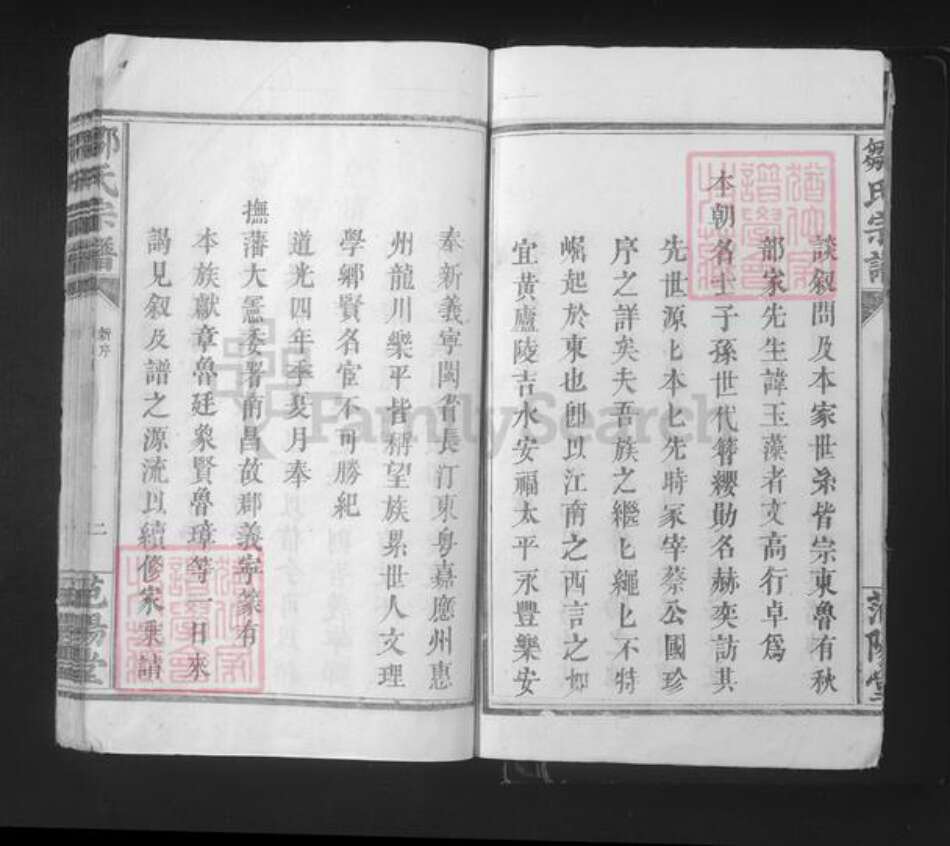 鄒氏宗譜
范陽堂
談叙問及本家世系皆宗東魯有秋
部家先生諱玉藻者文高行卓爲
本朝名士子孫世代簪纓勛名赫奕訪其
先世源匕本匕先時冢宰蔡公國珍
序之詳矣夫吾族之繼匕繩匕不特
崛起於東也卽以江南之西言之如
宜黃廬陵吉水安福太平永豐樂安
奉新義寧閩省長汀東粵嘉應州惠
州龍川樂平皆稱望族累世人文理
學鄉賢名宦不可勝紀
道光四年季夏月奉
撫藩大憲委署南昌故郡義寧篆有
本族獻章魯廷象賢魯璋等一日來
謁見叙及譜之源流以續修家乘請
鄒氏宗譜
新序
二
范陽堂
FamilySearch